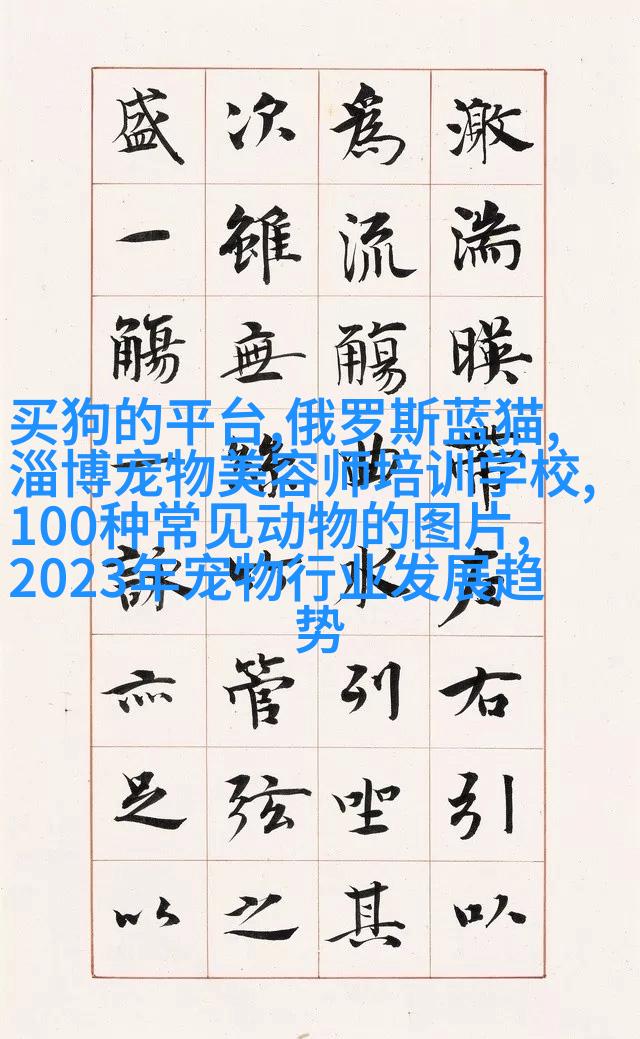 激湍暎帶左右引以
為流觴曲水列坐其
次雖無絲竹管弦之
盛一觴一詠亦足以
买狗的平台,俄罗斯蓝猫,
淄博宠物美容师培训学校,
100种常见动物的图片,
2023年宠物行业发展趋
势